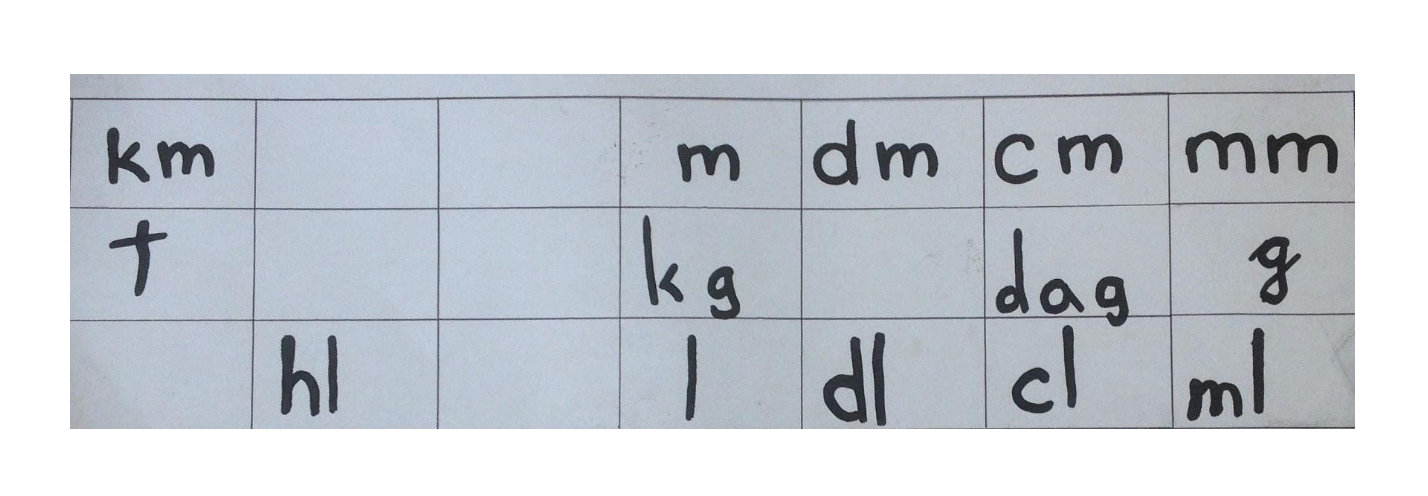 km m dm cm mm
t kg dag g
hl l dl cl ml